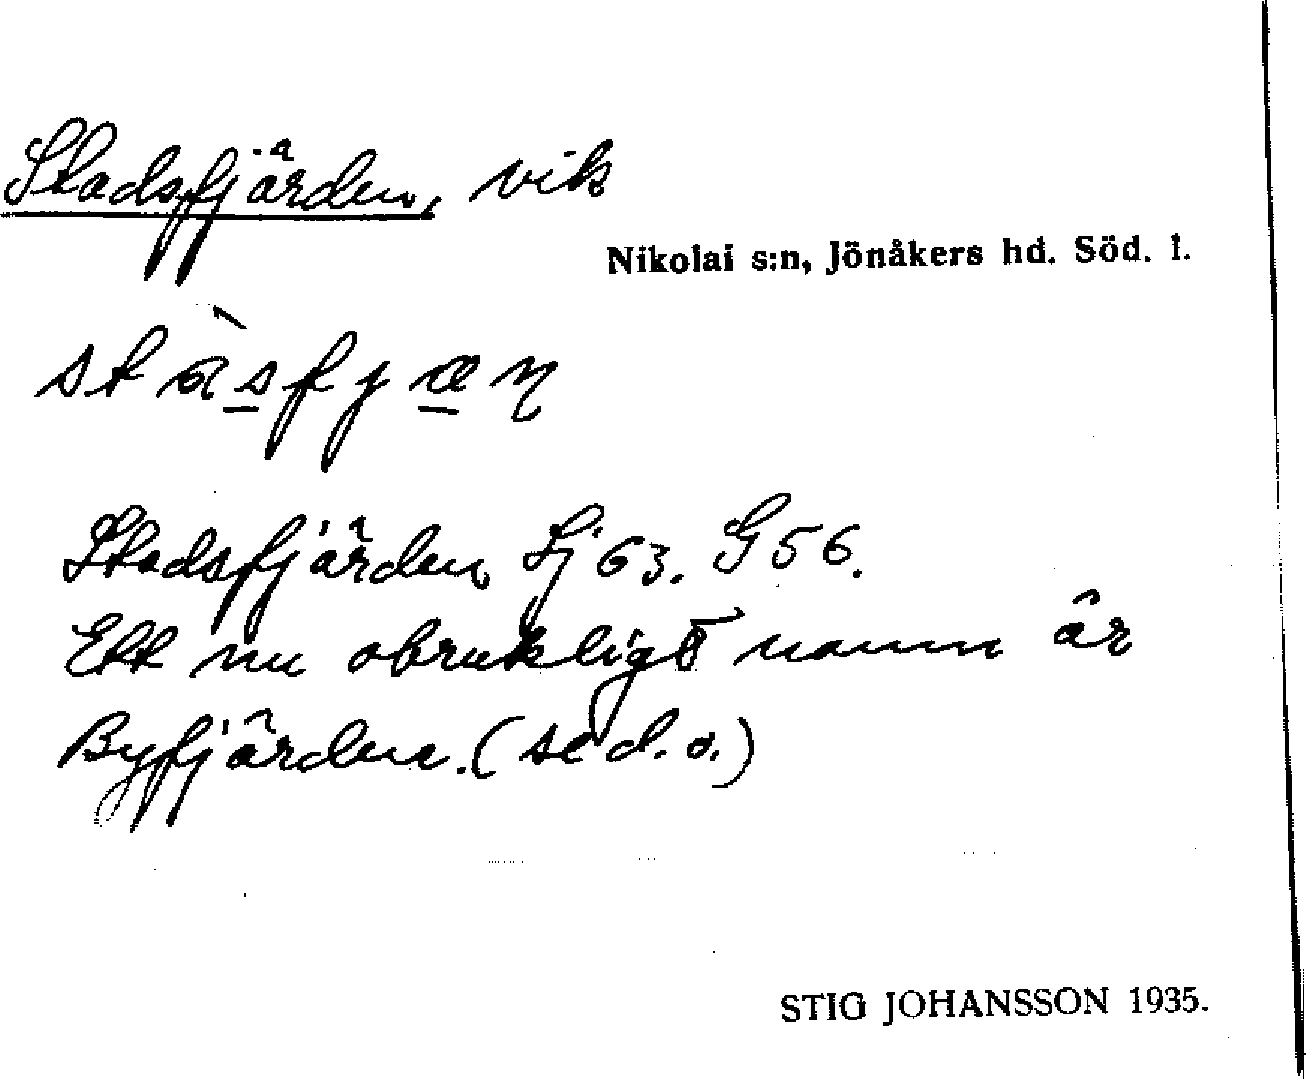 Stadsfjärden, vik
Nikolai s:n, Jönåkers hd. Söd. l.
stàsfjæɳ
Stadsfjärden Lj 63. G 56.
Ett nu obrukligt namn är
Byfjärden. (se d. o.)
STIG JOHANSSON 1935.